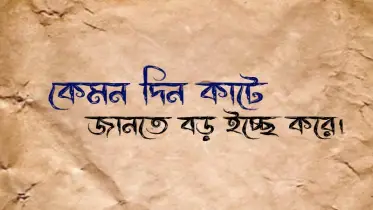 কেমন দিন কাটে
জানতে বড় ইচ্ছে করে।